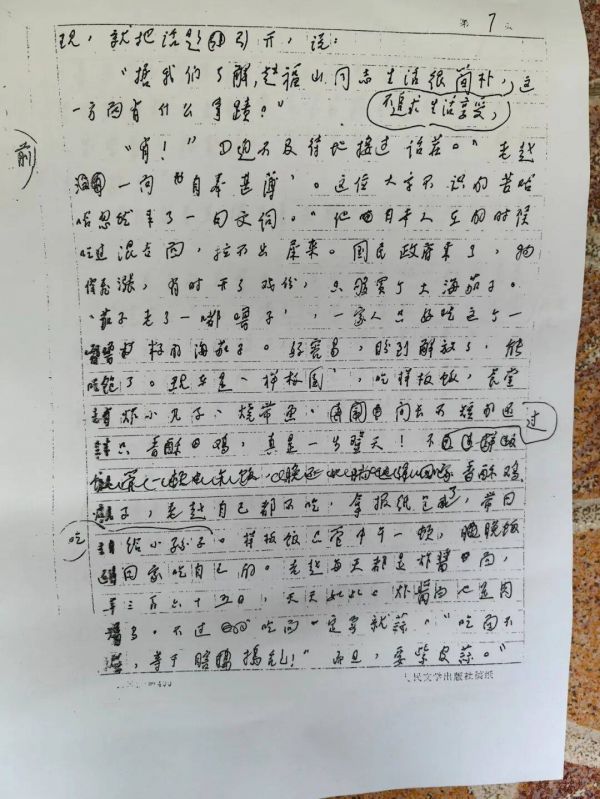 第 7 页
现，就把话题引开，说：
“据我们了解，赵福山同志生活很简朴，这
不追求生活享受，
一方面有什么事蹟？”
“有！”D迫不及待地接过话茬。“老赵
前
一向‘自奉甚薄’。这位大字不识的苦哈
哈忽然来了一句文词。“他自日本人在的时候
吃过混合面，拉不出屎来。国民政府来了，物
价飞涨，有时开了戏份，只够买个大海茄子。
‘茄子老了一嘟噜子’，一家人只好吃这个一
籽的海茄子。好容易，盼到解放了，能
吃饱了。现在是‘样板团’，吃样板饭，食堂
炸小丸子、烧带鱼。间去不短的送
过
只香酥鸡，真是一步登天！不
香酥鸡
，老赵自己都不吃，拿报纸包了，带回
吃
给小孙子。样板饭只管中午一顿，晚饭
回家吃自己的。老赵每天都是炸酱面，
年三百六十五日，天天如此。炸酱面也是肉
了。不过吃面一定要就蒜。“吃面不
，等于瞎捣乱！”而且，要紫皮蒜。”
400
人民文学出版社稿纸